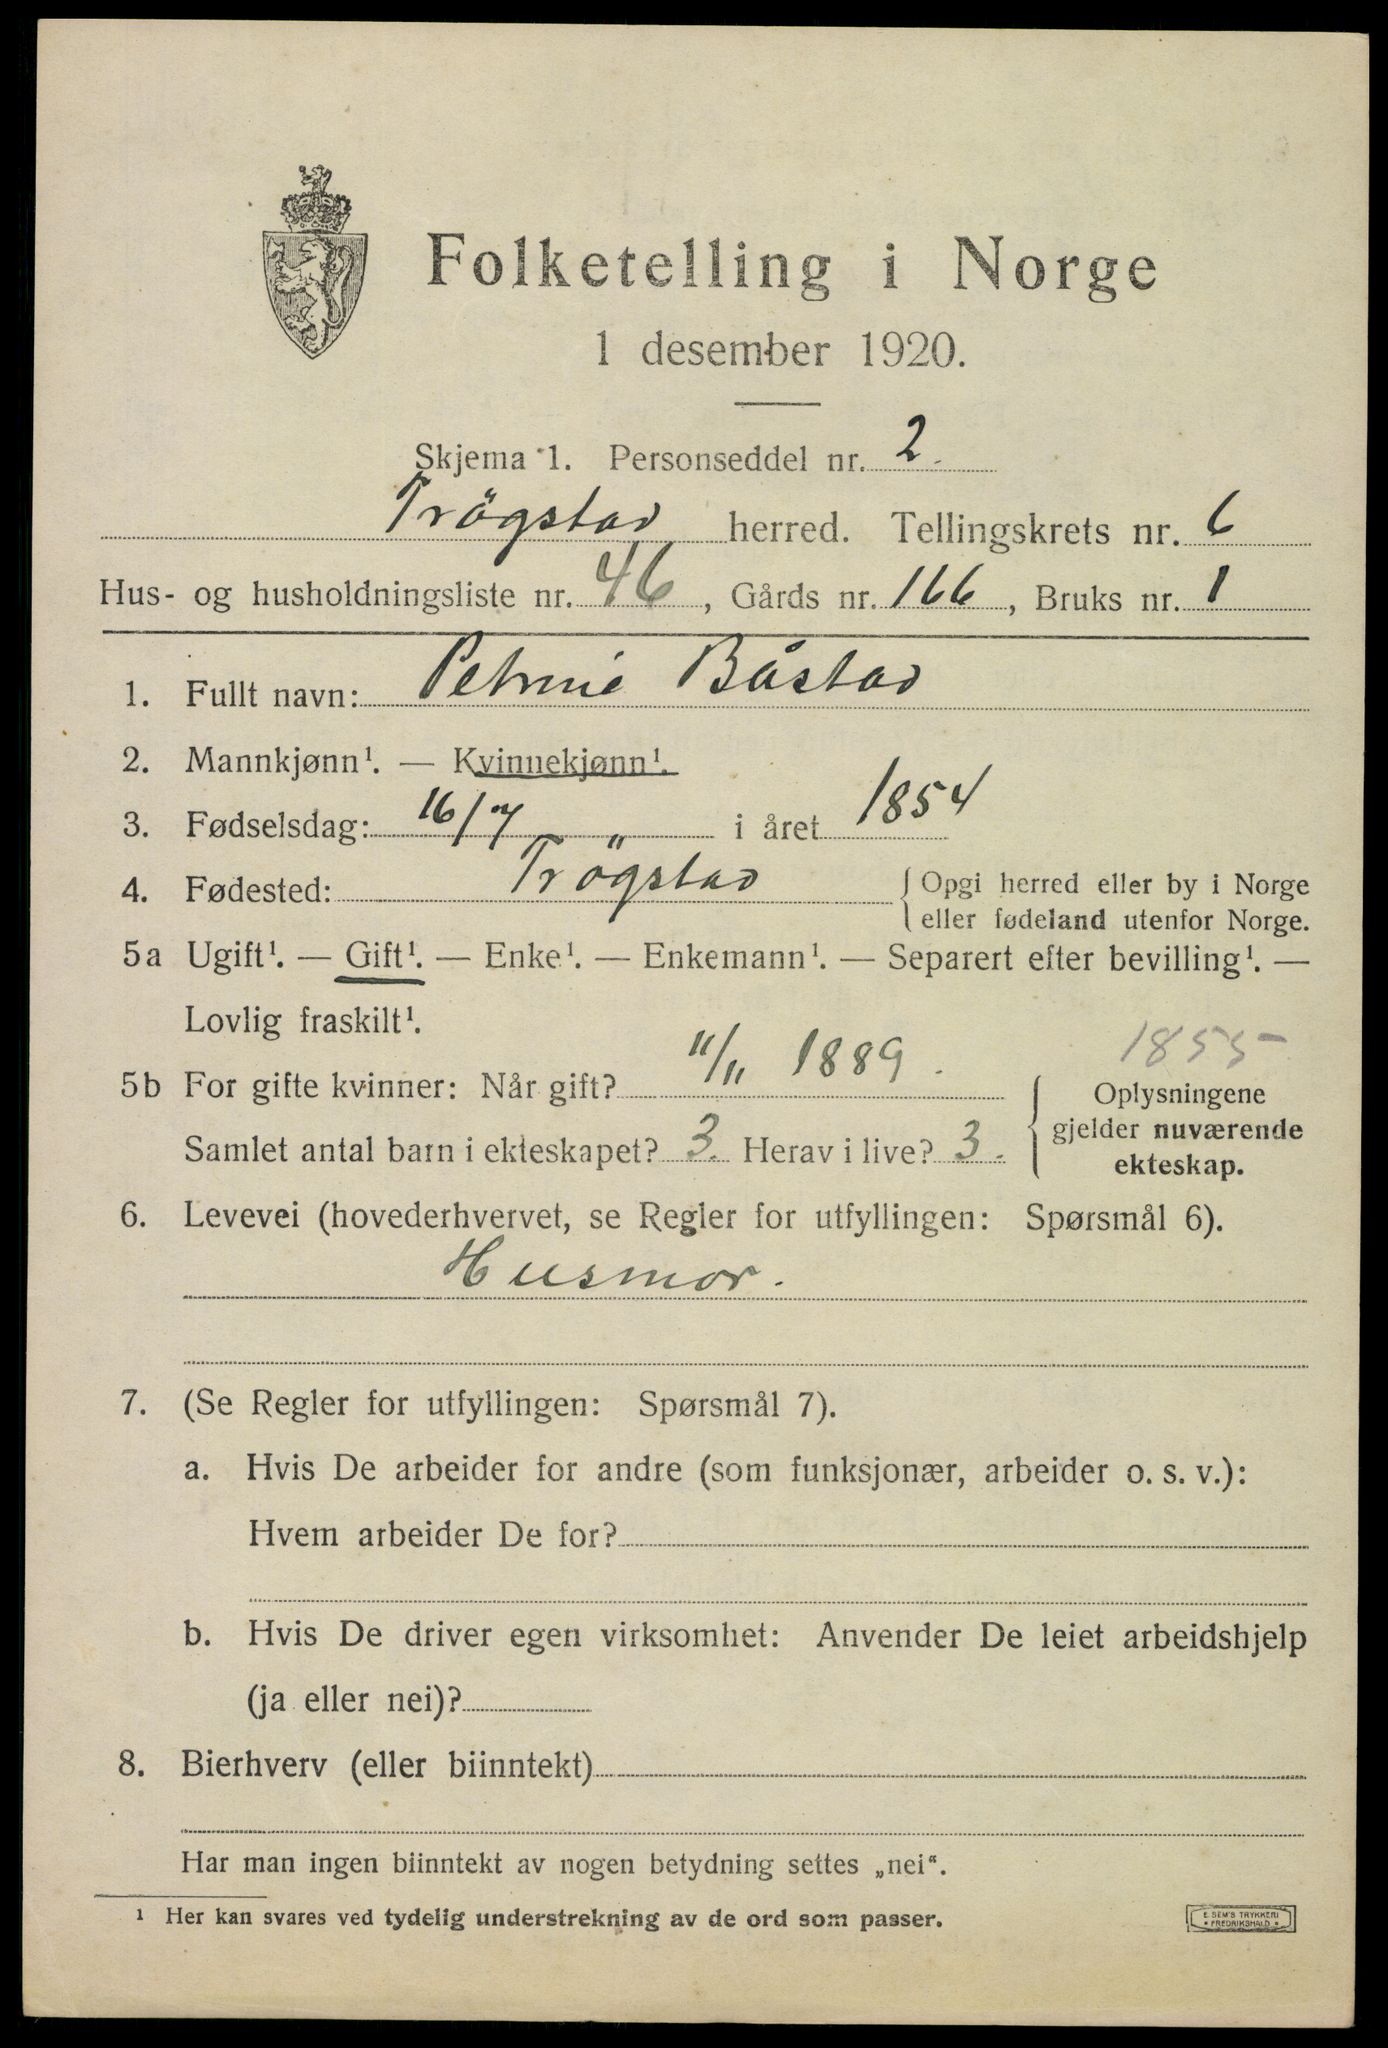 Folketelling i Norge
1 desember 1920.
Skjema 1. Personseddel nr. 2.
Trögstad herred. Tellingskrets nr. 6
Hus- og husholdningsliste nr. 46, Gårds nr. 166, Bruks nr. 1
1. Fullt navn: Petrine Båstad
2. Mannkjønn¹. — Kvinnekjønn¹.
3. Fødselsdag: 16/7 i året 1854
4. Fødested: Trögstad {Opgi herred eller by i Norge
eller fødeland utenfor Norge.
5a Ugift¹. — Gift¹. — Enke¹. — Enkemann¹. — Separert efter bevilling¹. —
Lovlig fraskilt¹.
1855
5b For gifte kvinner: Når gift? 11/11 1889.
Samlet antal barn i ekteskapet? 3. Herav i live? 3.
Oplysningene
gjelder nuværende
ekteskap.
6. Levevei (hovederhvervet, se Regler for utfyllingen: Spørsmål 6).
Husmor.
7. (Se Regler for utfyllingen: Spørsmål 7).
a. Hvis De arbeider for andre (som funksjonær, arbeider o. s. v.):
Hvem arbeider De for?
b. Hvis De driver egen virksomhet: Anvender De leiet arbeidshjelp
(ja eller nei)?
8. Bierhverv (eller biinntekt)
Har man ingen biinntekt av nogen betydning settes „nei“.
¹ Her kan svares ved tydelig understrekning av de ord som passer.
E. SEM'S TRYKKERI
• FREDRIKSHALD •